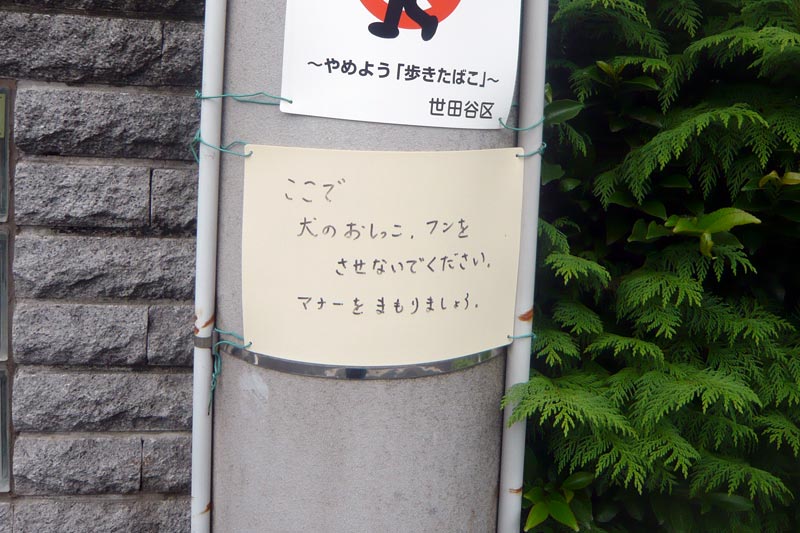 ～やめよう「歩きたばこ」～
世田谷区
ここで
犬のおしっこ、フンを
させないでください。
マナーをまもりましょう。